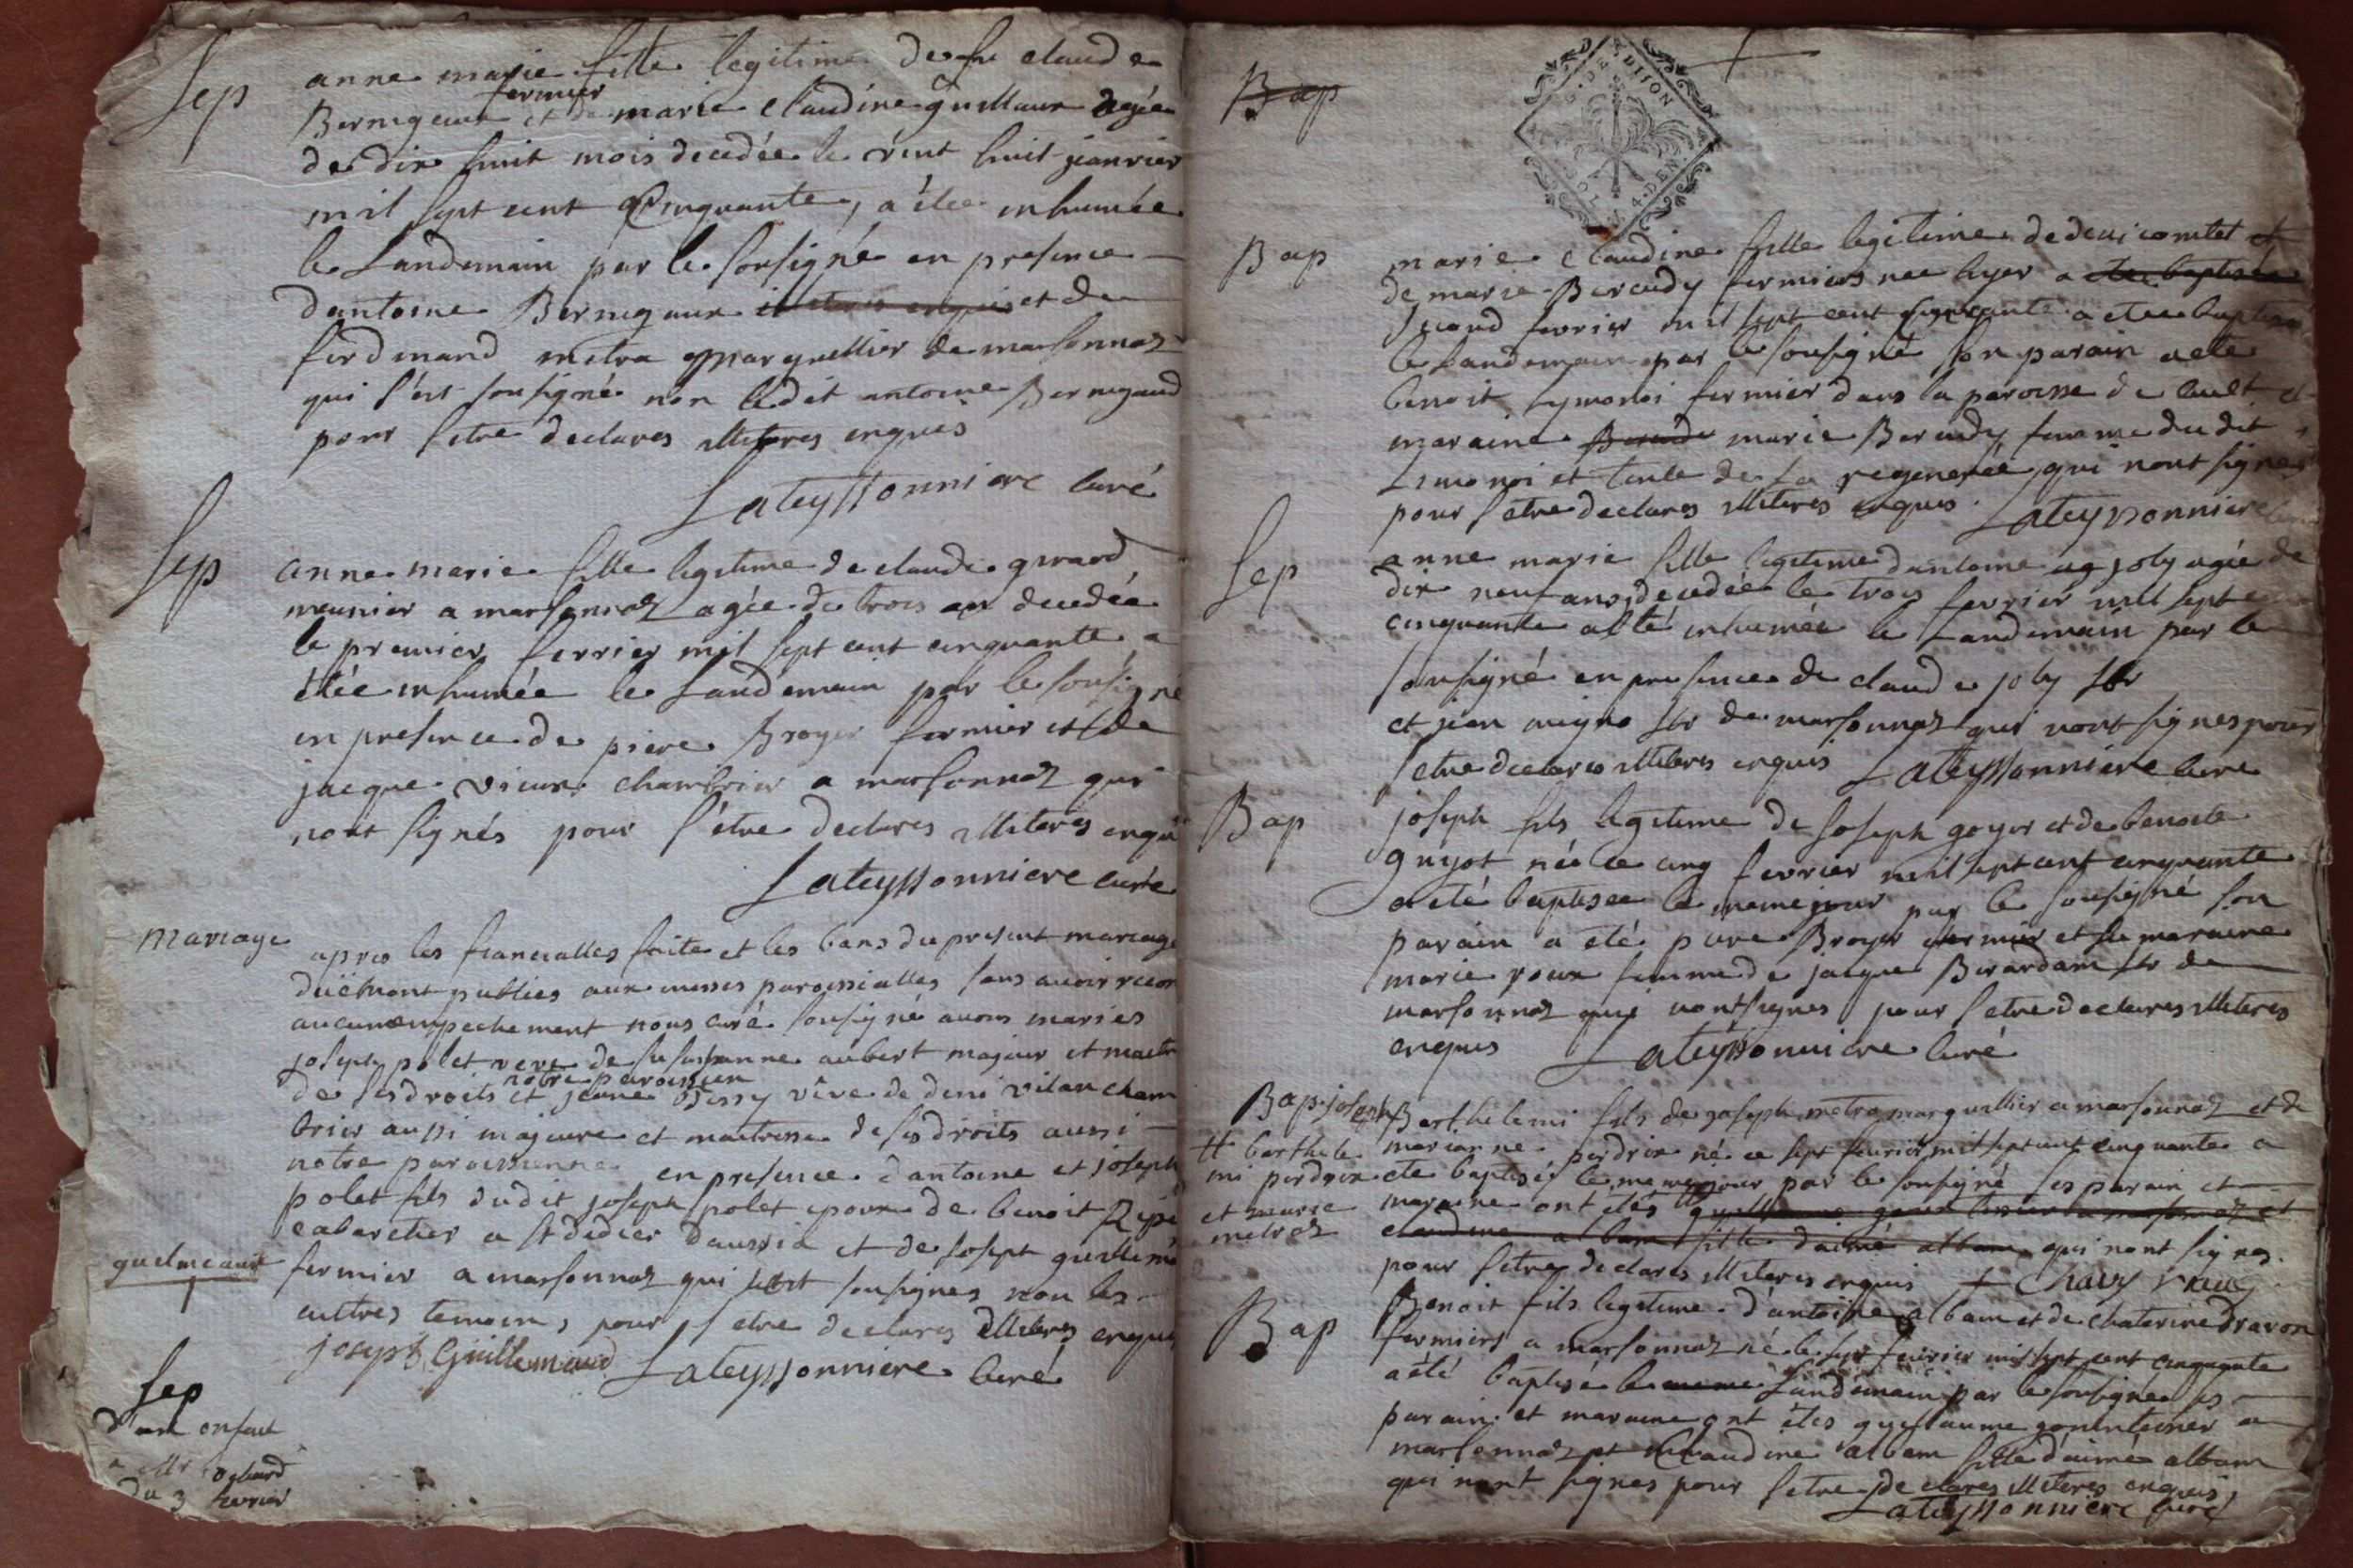 Sep
anne marie fille legitime de fu claude
fermier
Bernigaux et de marie claudine guillaux agée
de dix huit mois decedée le vint huit janvier
mil sept cent Cinquante, a étée inhumée
le Landemain par le sousigné en presence
dantoine Bernigaux et de
ferdinand metra marguellier de marsonnaz
qui s'est sousigné non ledit antoine Bernigaud
pour setre declares illiteres enquis
Lateyssonniere curé
Sep
anne marie fille legitime de claude girard
meunier a marsonnaz agée de trois an decedée
le premier fevrier mil sept cent cinquante a
étée inhumée le Landemain par le sousigné
en presence de piere Broyer fermier et de
jacque vieux chambrier a marsonnaz qui
nont signés pour s'etre declares illiteres enquis
Lateyssonniere curé
Mariage
apres les fiancialles faite et les bans du present mariage
düement publies aux messes paroissialles sans avoir
aucun empechement nous curé sousigné avons maries
joseph polet veve de fu susanne aubert majeur et maitre
notre paroissien
de ses droits et jeanne vêve de deni vilan cham
brier aussi majeure et maitresse de ses droits aussi
notre paroissienne en presence d'antoine et joseph
polet fils dudit joseph polet de benoit
cabaretier a st didier daussia et de joseph
fermier a marsonnaz qui sousignes non les
autres temoins pour setre declares illiteres enquis
joseph Guillemaud Lateyssonniere curé
Sep
enfant
du 3 fevrier
Bap
G. DE DIJON
4. DEN.
Bap
marie claudine fille legitime de deni comtet et
de marie Bereudy fermiers nee hyer a
second fevrier mil sept cent cinquante a etee baptisee
le Landemain par le sousigné son parain a ete
benoit symonoi fermier dans la paroisse de et
maraine marie Bereudy femme du dit
simonoi et tante de la regenerée qui nont signes
pour setre declares illiteres enquis Lateyssonniere
Sep
anne marie fille legitime dantoine joly agée de
dix neuf ans decedée le trois fevrier mil sept cent
cinquante a été inhumée le Landemain par le
sousigné en presence de claude joly
et jean de marsonnaz qui nont signes pour
setre declares illiteres enquis Lateyssonniere curé
Bap
joseph fils legitime de joseph goyer et de benoite
guyot née le cinq fevrier mil sept cent cinquante
a été baptisee le meme jour par le sousigné son
parain a été piere Broyer fermier et sa maraine
marie roux femme de jacque Berardan de
marsonnaz qui nont signes pour setre declares illiteres
enquis Lateyssonniere curé
Bap joseph
Barthelemi fils de joseph metra marguellier a marsonnaz et de
marianne perdrix né ce sept fevrier mil sept cent cinquante a
# barthele
mi perdrix
et marie
metraz
ete baptisé le meme jour par le sousigné ses parain et
maraine ont étés
claudine alban fille d'aimé alban qui nont signes
pour setre declares illiteres enquis
Bap
Benoit fils legitime d'antoine alban et de chaterine dravon
fermiers a marsonnaz né le sept fevrier mil sept cent cinquante
a été baptisé le Landemain par le sousigné ses
parain et maraine ont étés guillaume a
marsonnaz et claudine alban fille d'aimé alban
qui nont signes pour setre declares illiteres enquis
Lateyssonniere curé